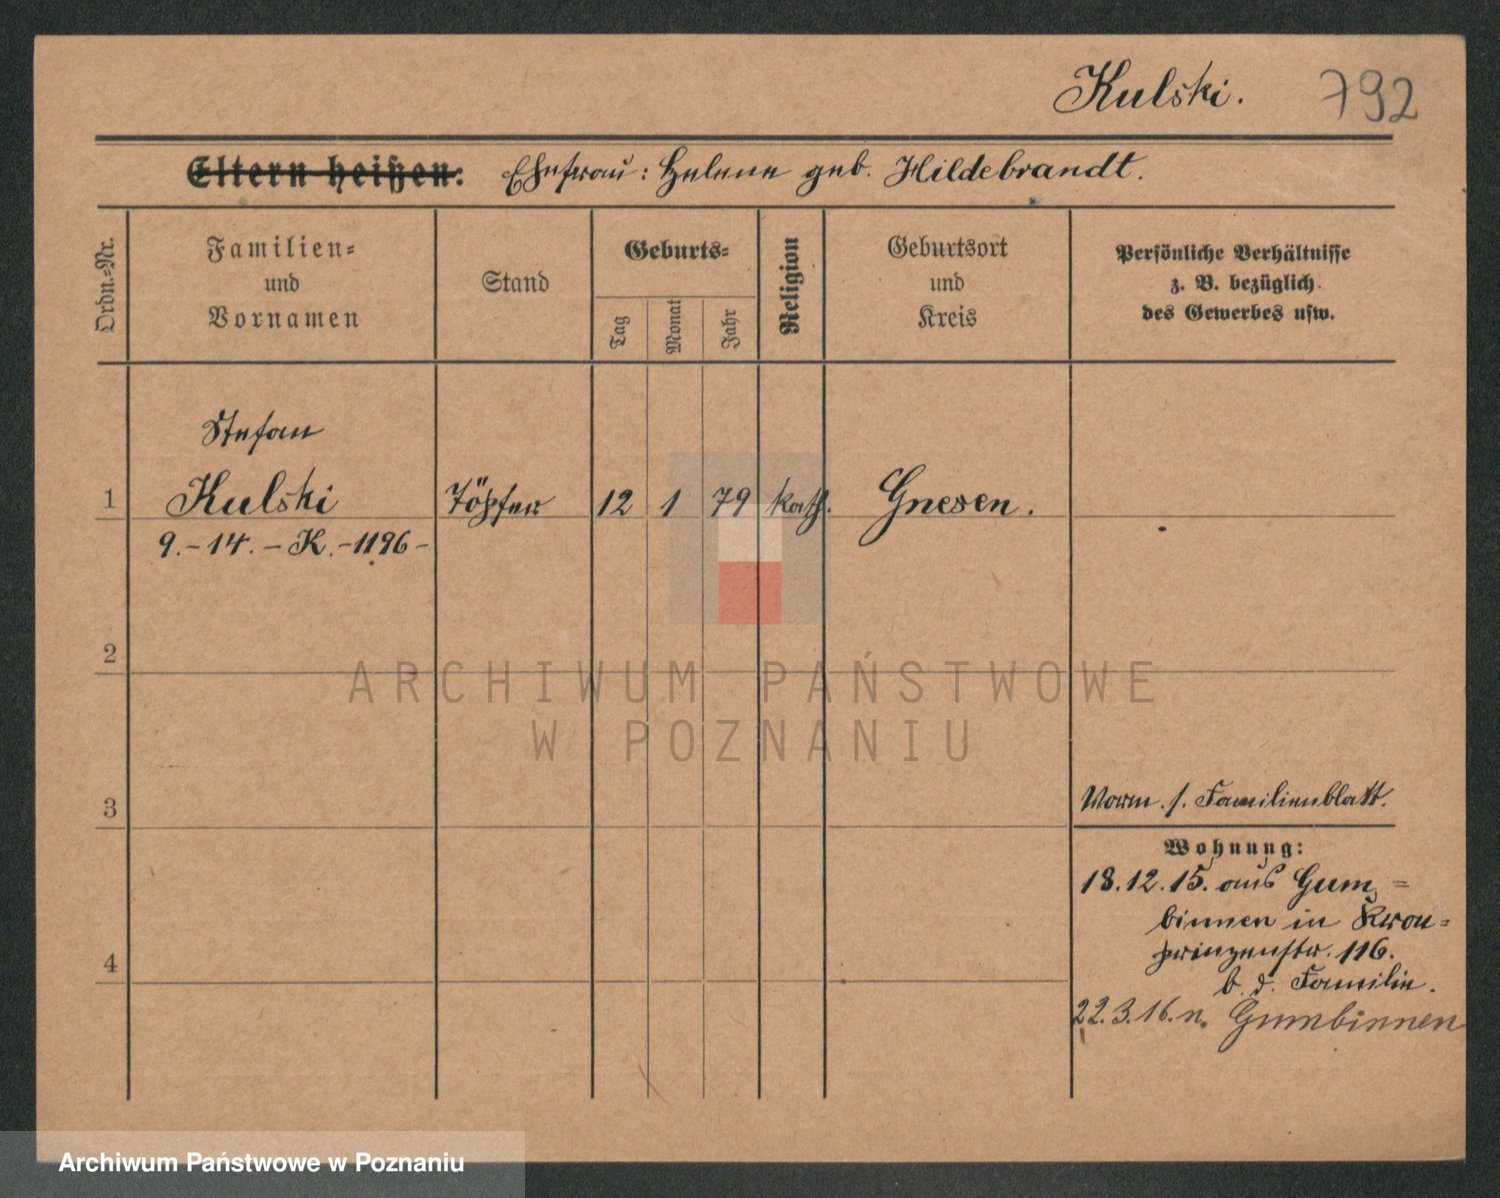 Kulski. 792
Eltern heißen: Ehefrau: Helene geb. Hildebrandt.
Ordn.=Nr.
Familien=
und
Vornamen
Stand
Geburts=
Tag
Monat
Jahr
Religion
Geburtsort
und
Kreis
Persönliche Verhältnisse
z. B. bezüglich
des Gewerbes usw.
Stefan
1 Kulski Töpfer 12 1 79 kath. Gnesen.
9.-14.-K.-1196-
2
ARCHIWUM PAŃSTWOWE
W POZNANIU
3 Vorm. s. Familienblatt.
Wohnung:
18.12.15. aus Gum=
binnen in Kron=
prinzenstr. 116.
4 b. d. Familie.
22.3.16. n. Gumbinnen
Archiwum Państwowe w Poznaniu